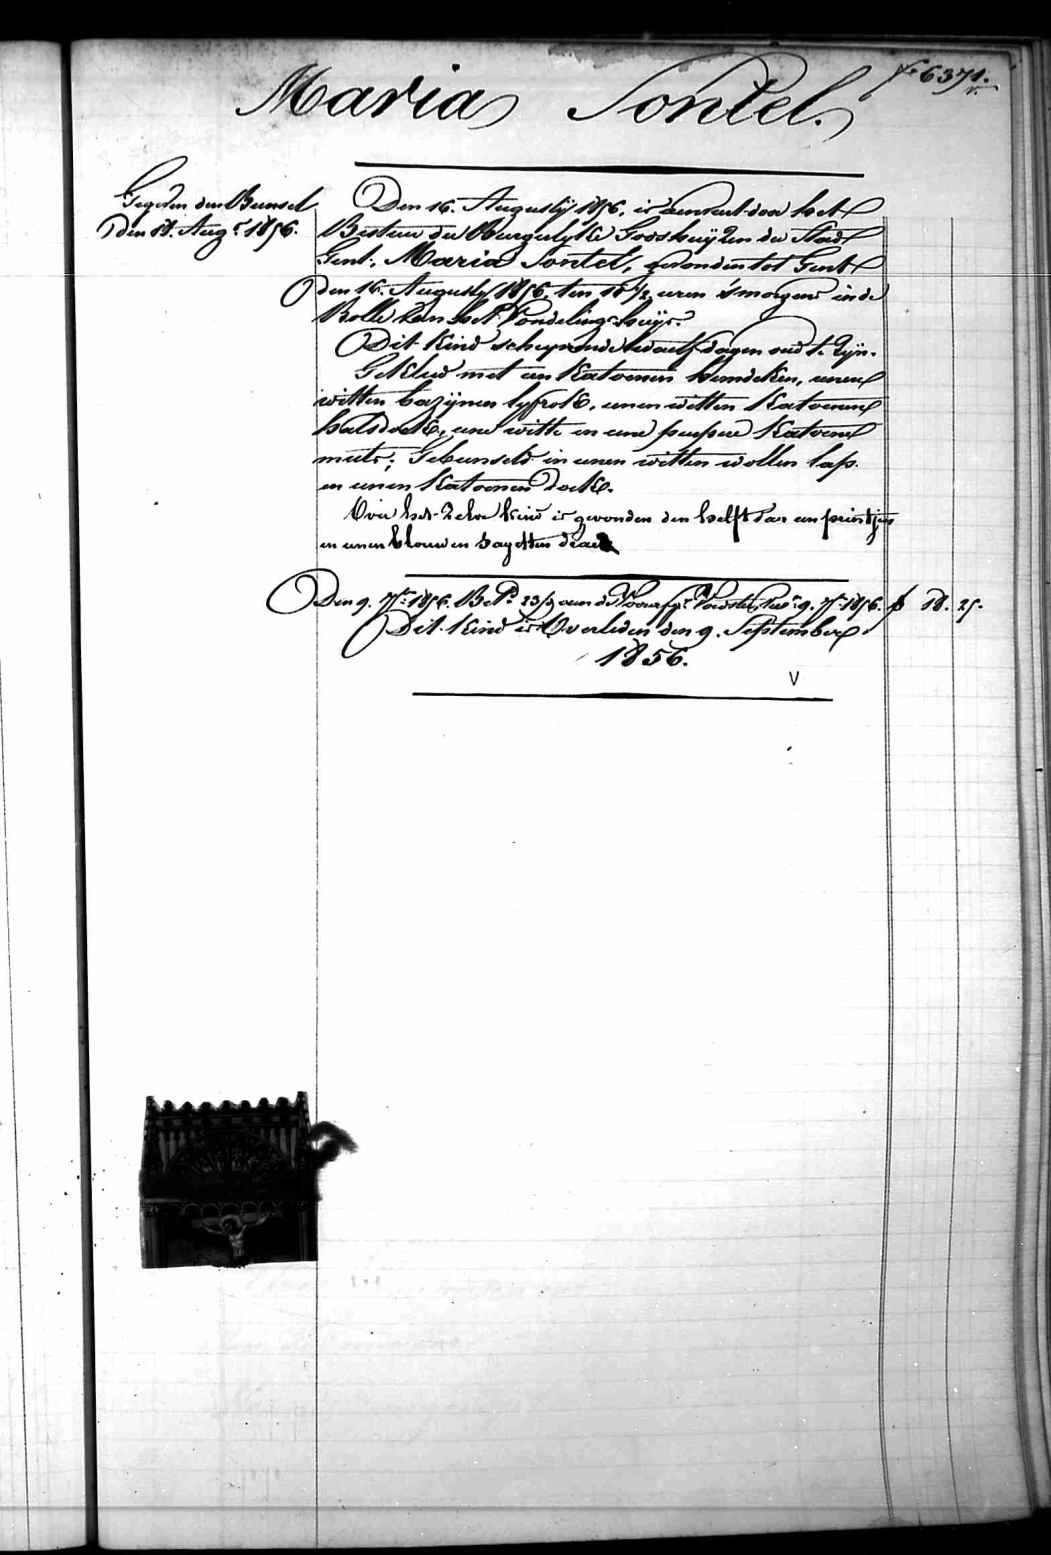 Fo 6371.
Maria Sontel.
Gegeven den Bunsel
den 18. Augt. 1856.
Den 16. Augusty 1856, is aenveerd door het
Bestuer der Burgerlyke Godshuyzen der Stad
Gent, Maria Sontel, gevonden tot Gent
den 16. Augusty 1856, ten 10 1/2 uren 's morgens in de
Rolle van het Vondelingshuys.
Dit kind scheynende twaelf dagen oud te zyn.
Gekleed met een katoenen hemdeken, eenen
witten bazynen lyfrok, eenen witten katoenen
halsdoek, eene witte en eene peupere katoene
muts; Gebunseld in eenen witten wollen lap
en eenen katoenen doek.
Over het zelve kind is gevonden den helft van een printjen
en eenen blauwen sayetten draed
Den 9. 7ber 1856. Bet. aen de 9. 7ber 1856. f 18. 25.
Dit kind is Overleden den 9. September
1856.
V